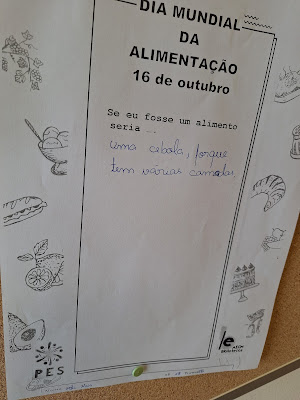 DIA MUNDIAL
DA
ALIMENTAÇÃO
16 de outubro
Se eu fosse um alimento
seria …
uma cebola, porque
tem várias camadas.
PES